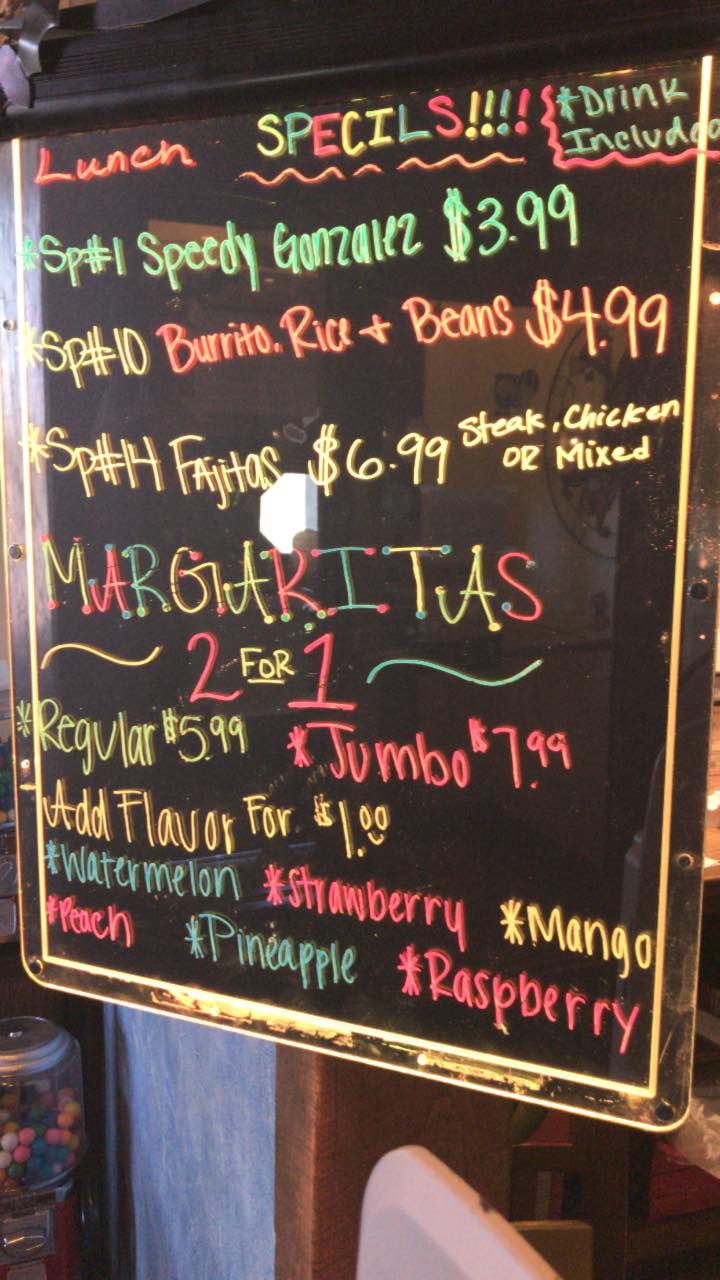 Lunch SPECILS!!!! *Drink Included
*Sp#1 Speedy Gonzalez $3.99
*Sp#10 Burrito, Rice + Beans $4.99
*Sp#14 FAjitas $6.99 Steak, Chicken OR Mixed
MARGARITAS
2 FOR 1
*Regular $5.99 *Jumbo $7.99
Add Flavor For $1.00
*Watermelon *Strawberry *Mango
*Peach *Pineapple *Raspberry